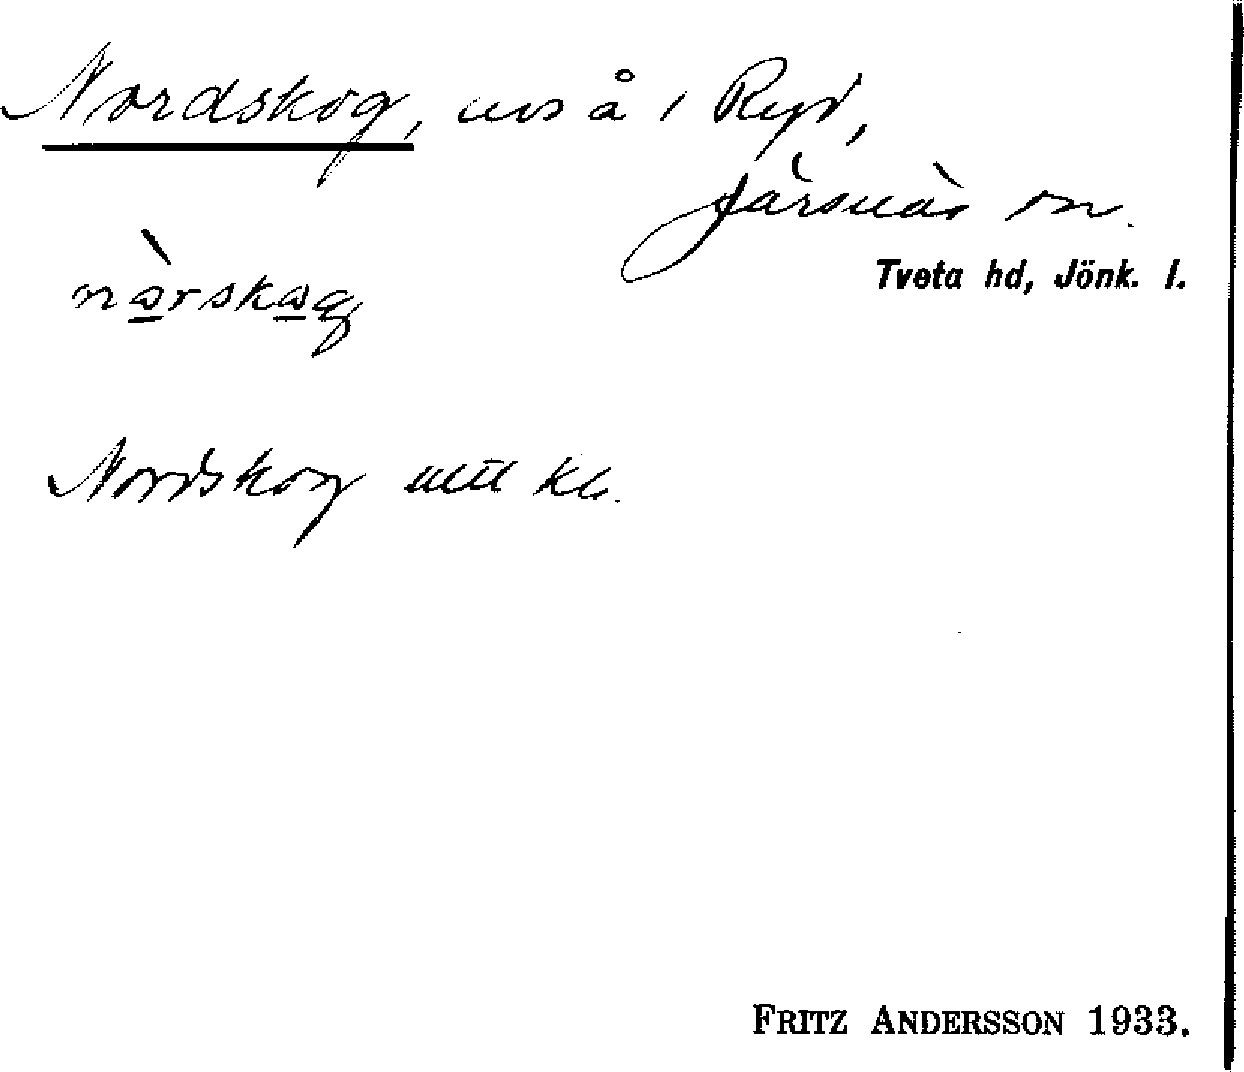 Nordskog, uvs å i Ryd,
Järsnäs sn.
Tveta hd, Jönk. l.
nòrskog
Nordskog
FRITZ ANDERSSON 1933.